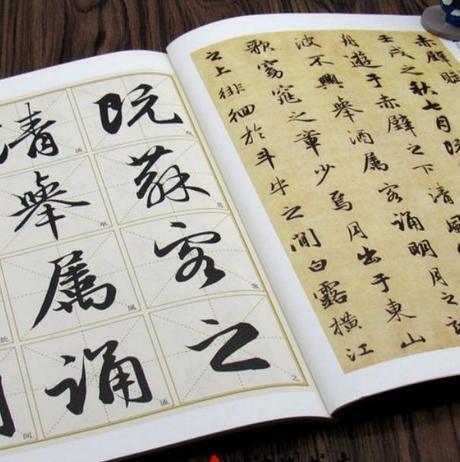 赤壁賦
壬戌之秋七月既
舟遊于赤壁之下清風
波不興舉酒屬客誦明月之詩
歌窈窕之章少焉月出于東山
之上徘徊於斗牛之間白露橫江
既蘇客之
清舉屬誦